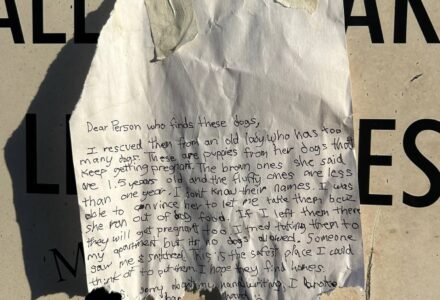 ALL
AR
Dear Person who finds these dogs,
I rescued them from an old lady who has too
many dogs. These are puppies from her dogs that
keep getting pregnant. The brown ones she said
are 1.5 years old and the fluffy ones are less
than one year. I don't know their names. I was
able to convince her to let me take them bcuz
she ran out of dog food. If I left them there
they will get pregnant too. I tried taking them to
my apartment but its no dogs allowed. Someone
saw me & snitched. This is the safest place I could
think of to put them. I hope they find homes.
sorry about my handwriting, I broke
my hand
LE
ES
M